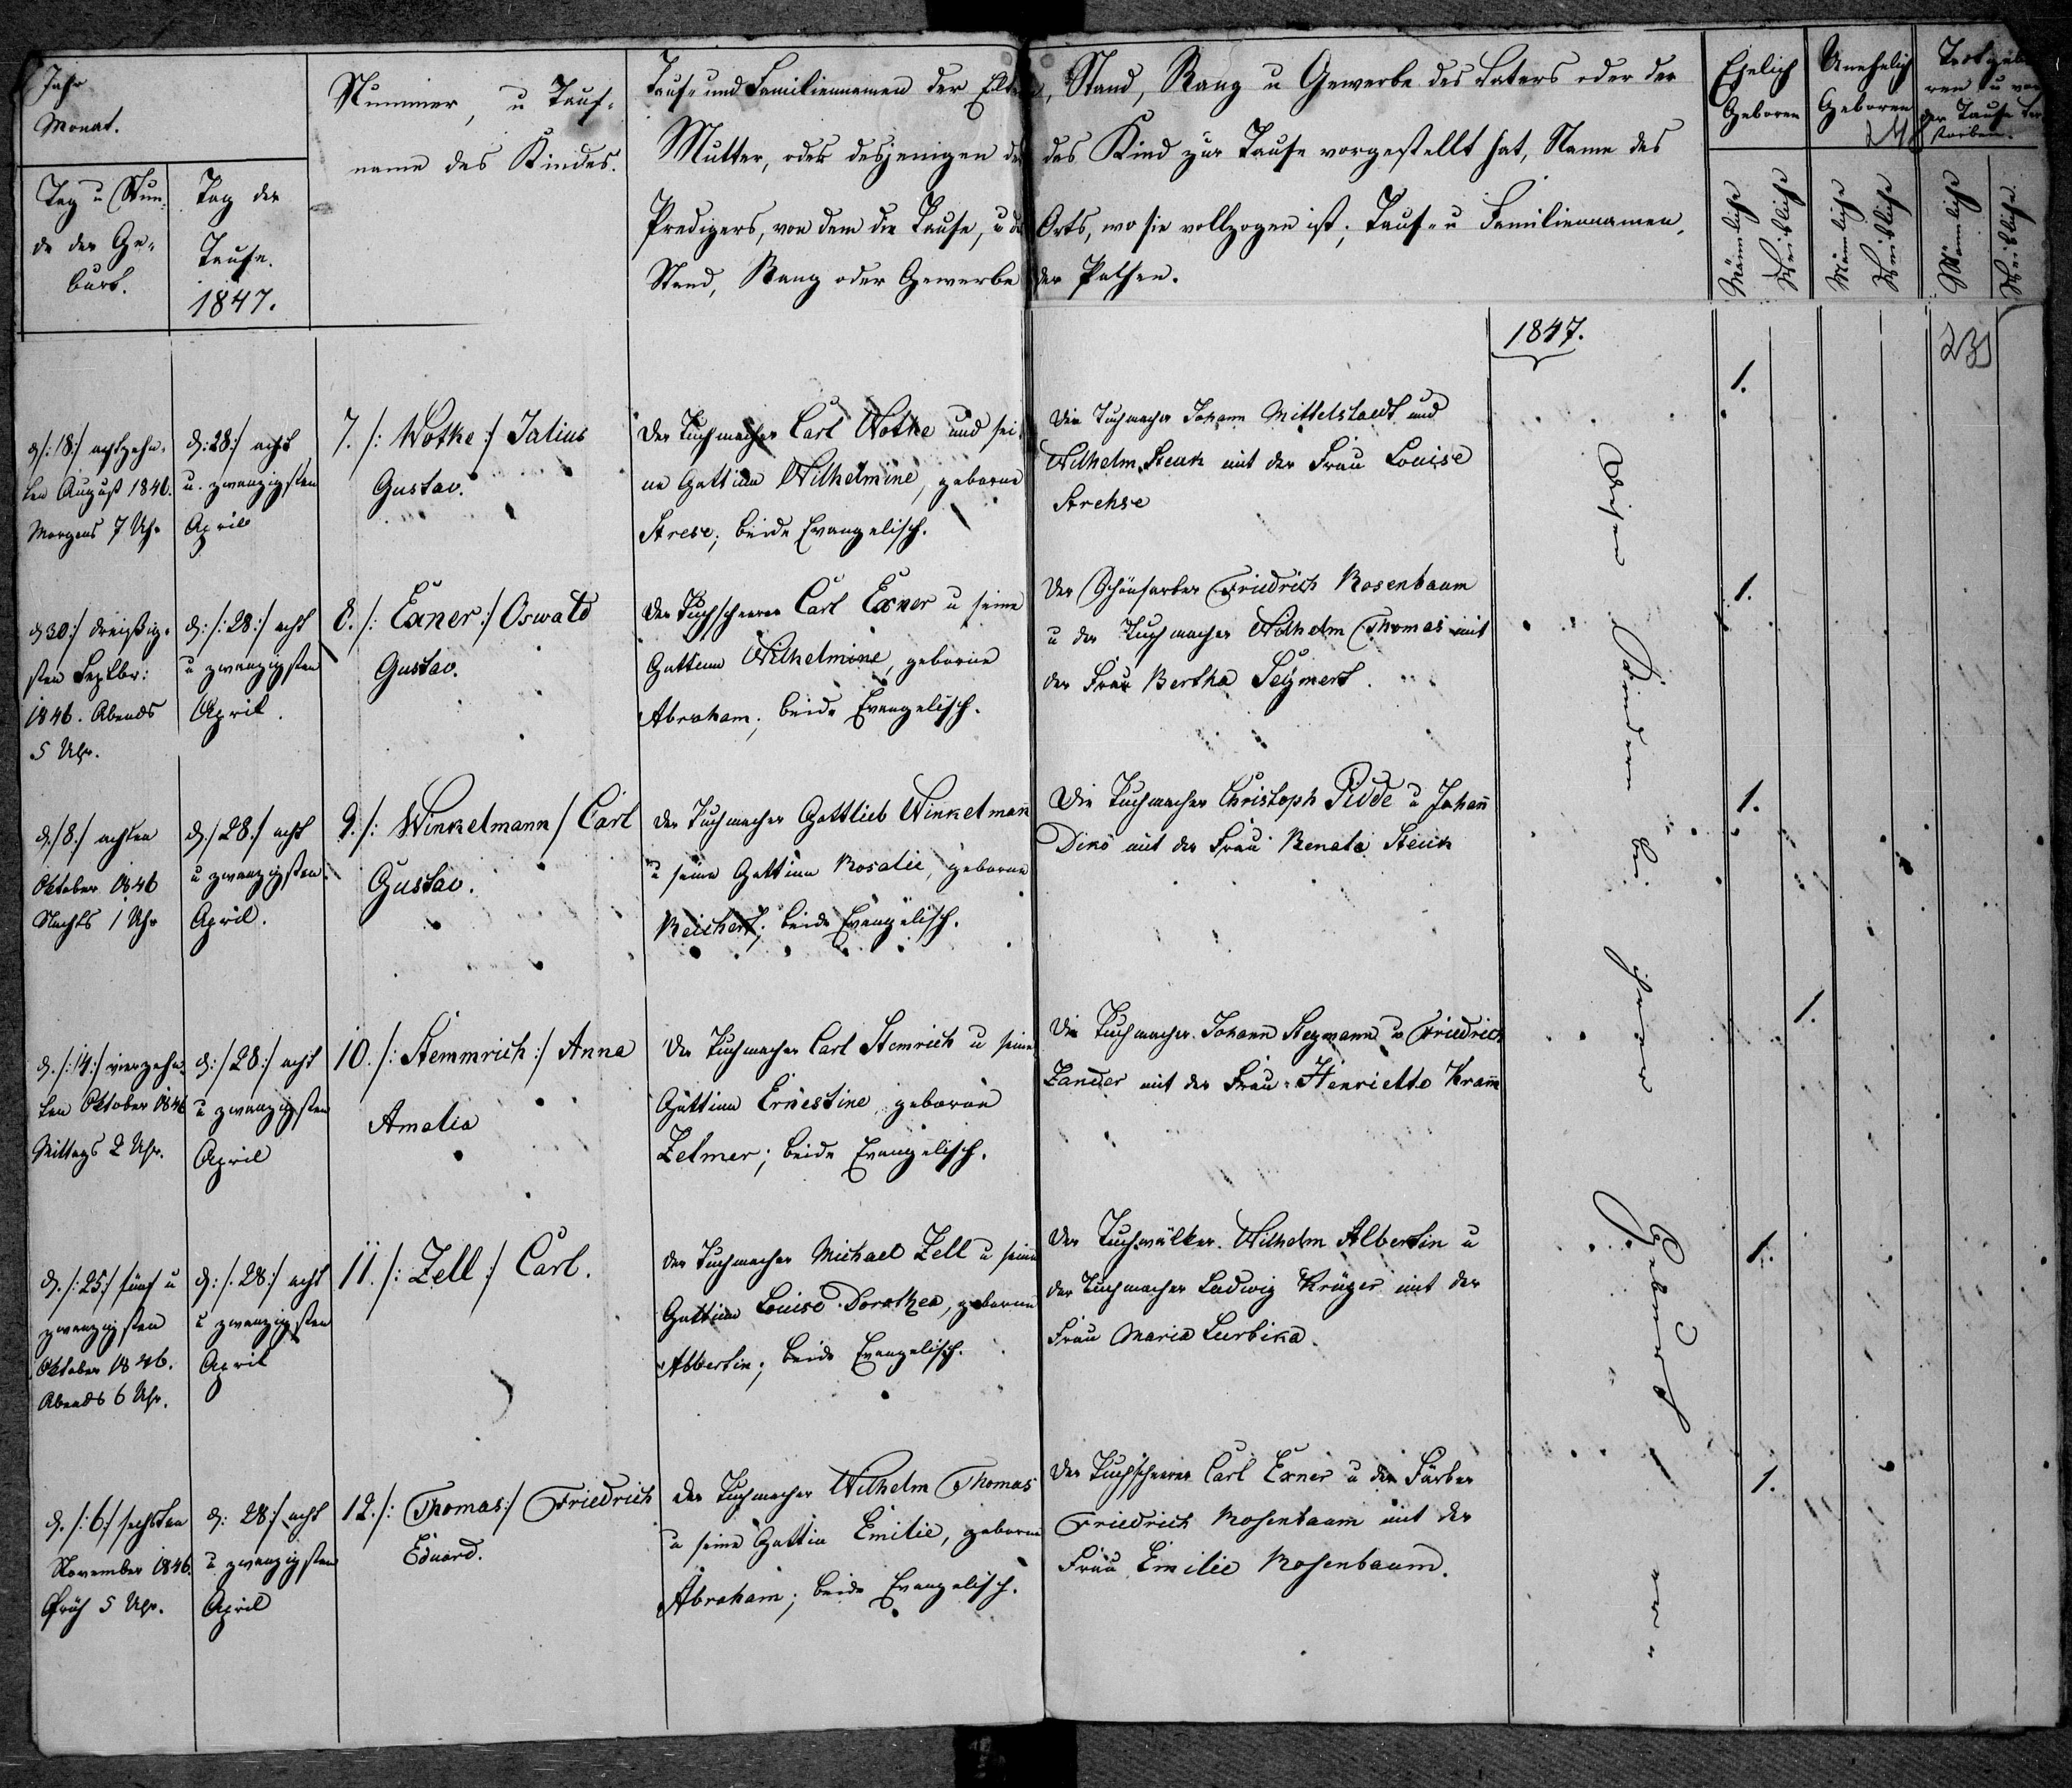 Jahr
Monat.
Tag u Stun-
de der Ge-
burt.
Tag der
Taufe.
1847.
Nummer, u Tauf-
name des Kindes.
Tauf- und Familiennamen der Eltern, Stand, Rang u Gewerbe des Vaters oder der
Mutter, oder desjenigen der das Kind zur Taufe vorgestellt hat, Name des
Predigers, von dem die Taufe, u des Orts, wo sie vollzogen ist; Tauf- u Familiennamen,
Stand, Rang oder Gewerbe der Pathen.
Ehelich
Geboren
Unehelich
Geboren
Todtgebo
ren u vor
der Taufe ver
storben.
Männliche
Weibliche
Männliche
Weibliche
Männliche
Weibliche
1847.
d/:18:/ achtzehn-
ten August 1846.
Morgens 7 Uhr
d:28:/ acht
u. zwanzigsten
April
7. /: Wotke :/ Julius
Gustav.
Der Tuchmacher Carl Wotke und sei-
ne Gattinn Wilhelmine, geborne
Strese; beide Evangelisch.
Die Tuchmacher Johann Mittelstaedt und
Wilhelm Steuk mit der Frau Louise
Strehse
1.
d 30:/ dreißig-
sten Septbr:
1846. Abends
5 Uhr.
d:/:28:/ acht
u zwanzigsten
April.
8. /: Exner :/ Oswald
Gustav.
Der Tuchscheerer Carl Exner u seine
Gattinn Wilhelmine, geborne
Abraham; beide Evangelisch.
Der Schönfärber Friedrich Rosenbaum
u der Tuchmacher Wilhelm Thomas mit
der Frau Bertha Seymert.
1.
d./8:/ achten
Oktober 1846
Nachts 1 Uhr
d:/28:/ acht
u zwanzigsten
April.
9. /: Winkelmann / Carl
Gustav.
Der Tuchmacher Gottlieb Winkelmann
u seine Gattinn Rosalie, geborne
Reichert; beide Evangelisch.
Die Tuchmacher Christoph Pidde u Johann
mit der Frau Renata Steuk
1.
d./:14:/ vierzehn-
ten Oktober 1846
Mittags 2 Uhr.
d:/28:/ acht
u zwanzigsten
April
10. /: Stemmrich :/ Anna
Amalia
Der Tuchmacher Carl Stemrich u seine
Gattinn Ernestine, geborne
Zelmer; beide Evangelisch.
Die Tuchmacher Johann Stegmann u Friedrich
Zander mit der Frau Henriette Kramm
1.
d./:25:/ fünf u
zwanzigsten
Oktober 1846.
Abends 6 Uhr.
d:/:28:/ acht
u zwanzigsten
April
11. /: Zell :/ Carl.
Der Tuchmacher Michael Zell u seine
Gattinn Louise Dorothea, geborne
Albertin; beide Evangelisch.
Der Tuchwalker Wilhelm Albertin u
der Tuchmacher Ludwig Krüger mit der
Frau Maria Lurbika.
1.
d./:6:/ sechsten
November 1846.
Früh 5 Uhr.
d: 28:/ acht
u zwanzigsten
April
12. /: Thomas :/ Friedrich
Eduard.
Der Tuchmacher Wilhelm Thomas
u seine Gattin Emilie, geborne
Abraham; beide Evangelisch.
Der Tuchscheerer Carl Exner u der Färber
Friedrich Rosenbaum mit der
Frau Emilie Rosenbaum.
1.